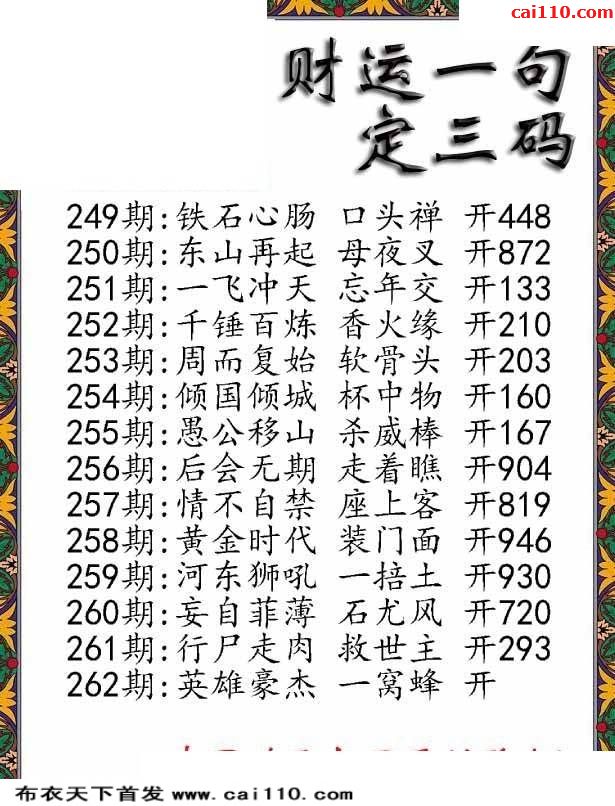 cai110.com
财运一句
定三码
249期:铁石心肠 口头禅 开448
250期:东山再起 母夜叉 开872
251期:一飞冲天 忘年交 开133
252期:千锤百炼 香火缘 开210
253期:周而复始 软骨头 开203
254期:倾国倾城 杯中物 开160
255期:愚公移山 杀威棒 开167
256期:后会无期 走着瞧 开904
257期:情不自禁 座上客 开819
258期:黄金时代 装门面 开946
259期:河东狮吼 一掊土 开930
260期:妄自菲薄 石尤风 开720
261期:行尸走肉 救世主 开293
262期:英雄豪杰 一窝蜂 开
布衣天下首发 www.cai110.com